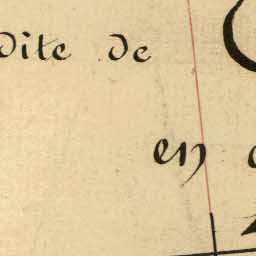 dite de
en